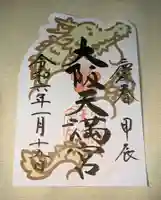 慶春
甲辰
大阪天満宮
令和六年一月十